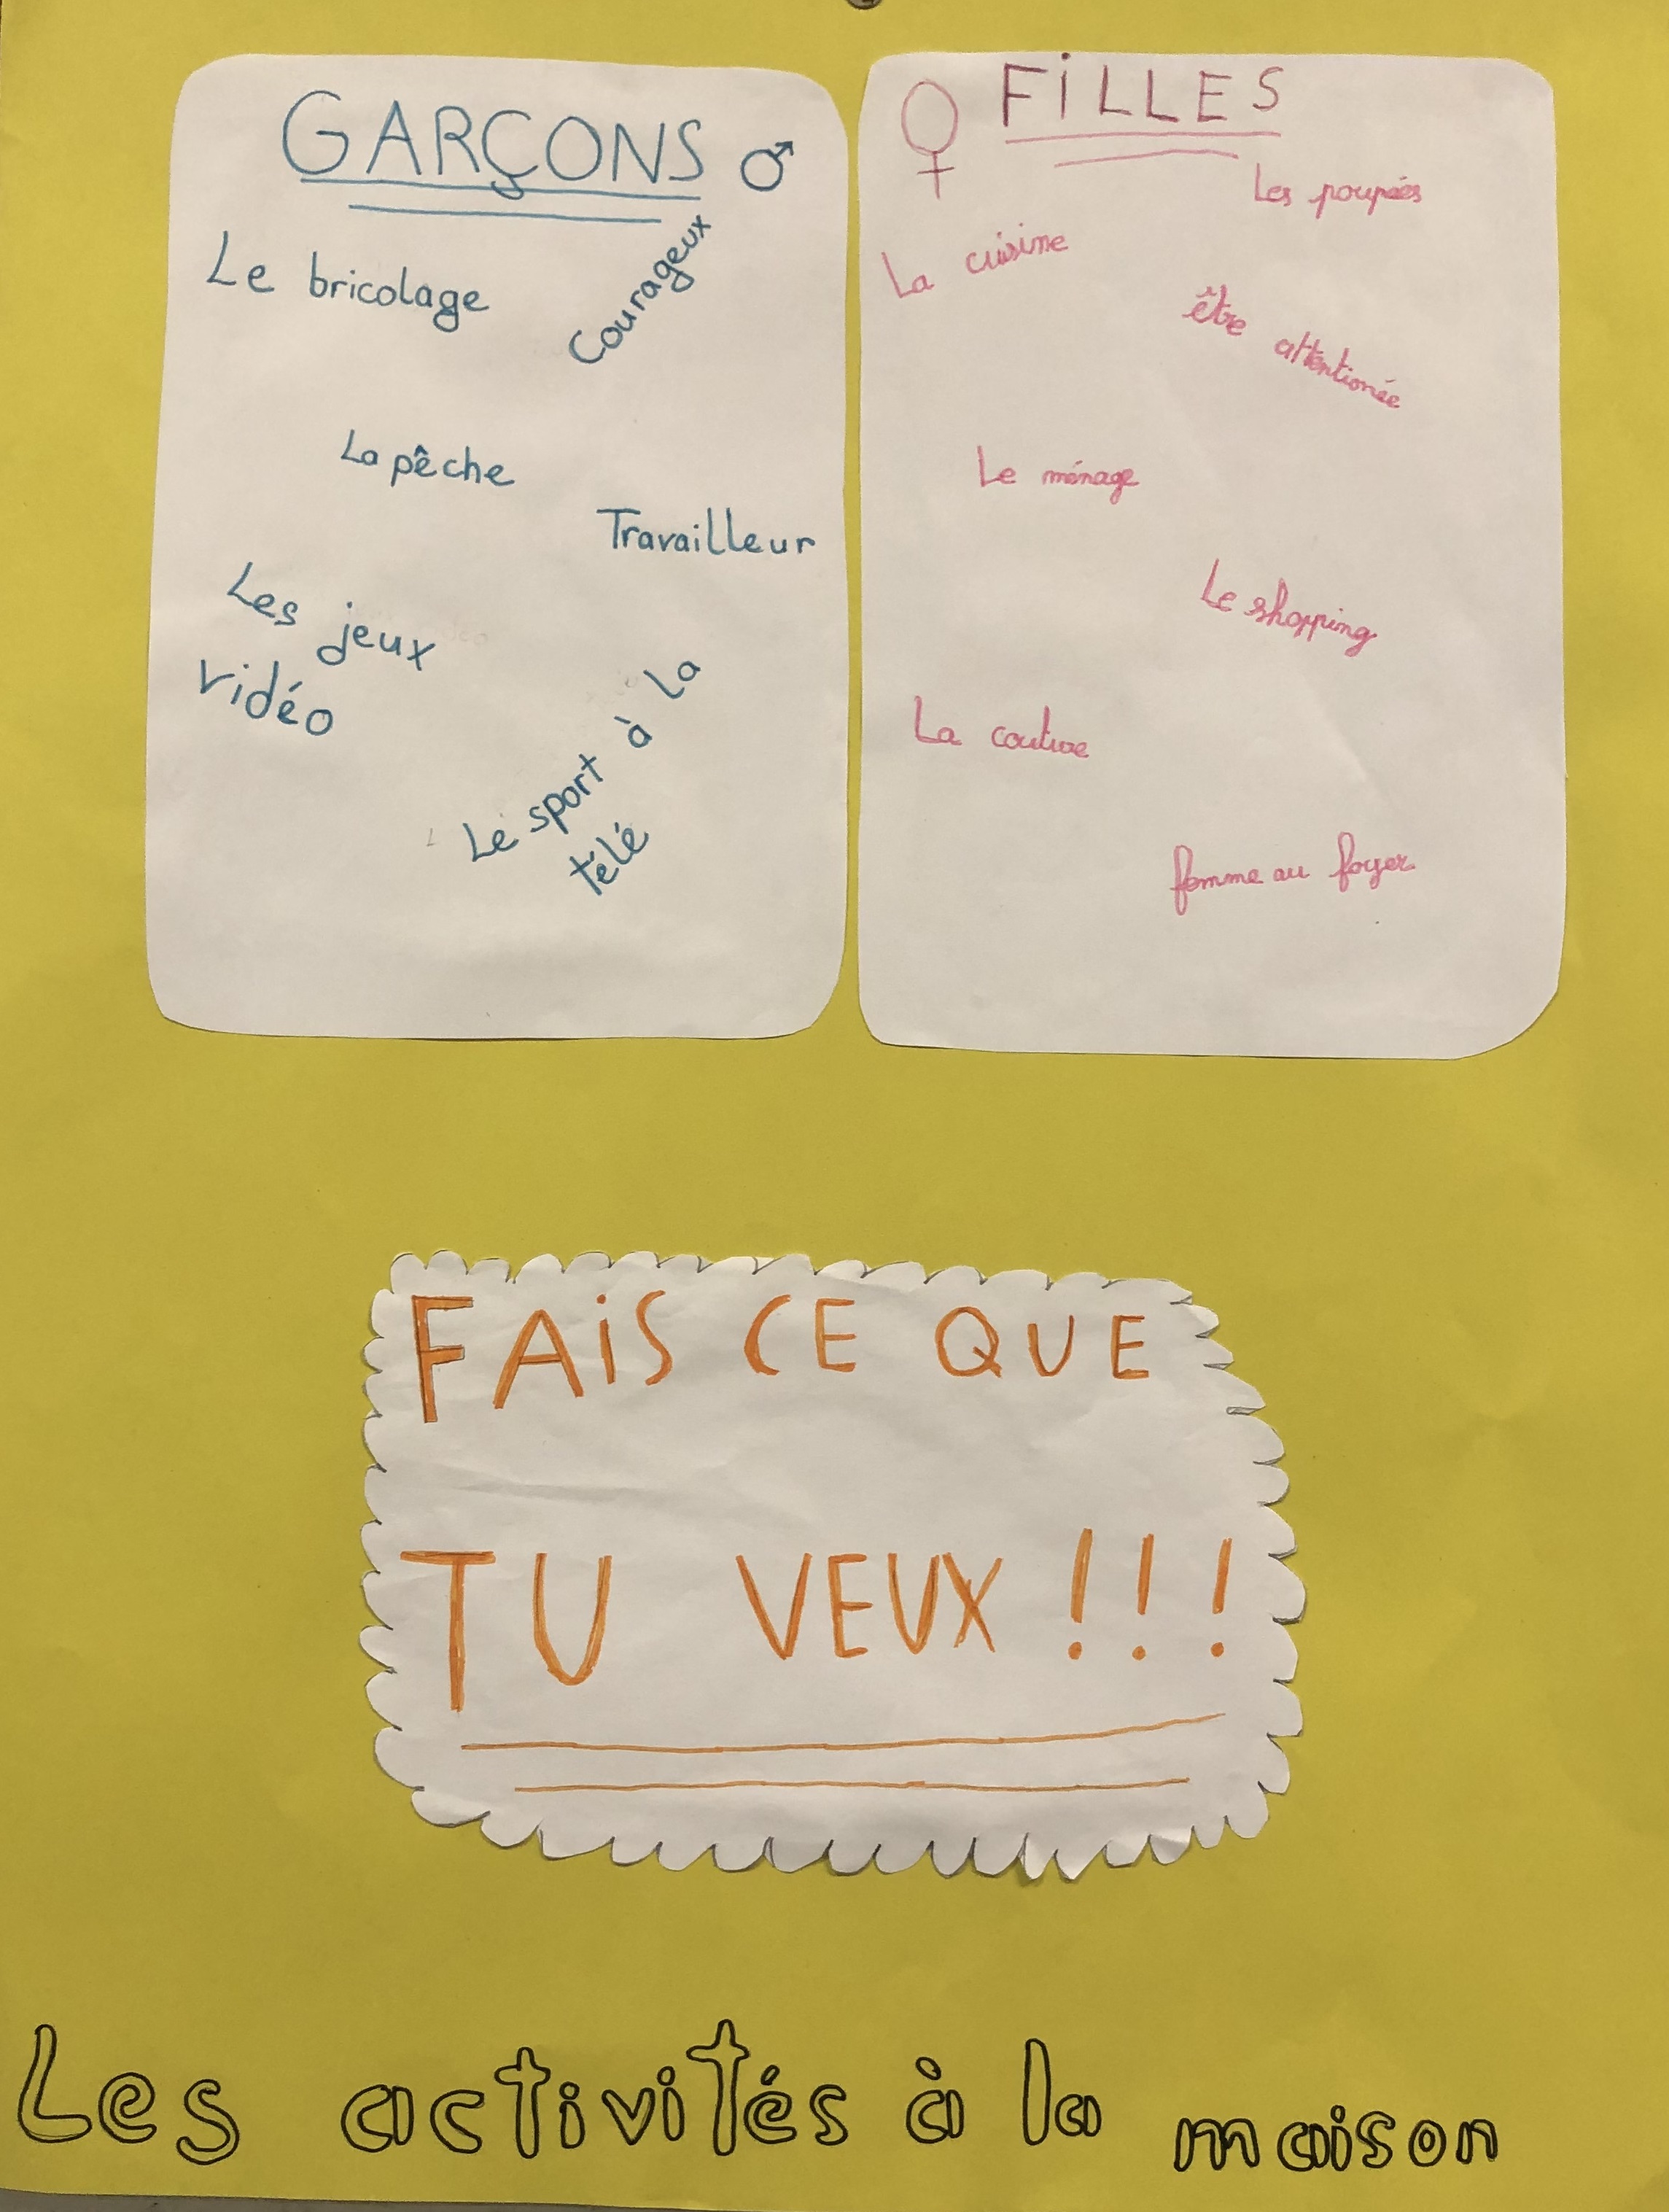 GARÇONS ♂
Le bricolage
Courageux
La pêche
Travailleur
Les jeux
vidéo
Le sport à la
télé
♀ FiLLES
Les poupées
La cuisine
être attentionée
Le ménage
Le shopping
La couture
femme au foyer
FAiS CE QUE
TU VEUX !!!
Les activités à la maison